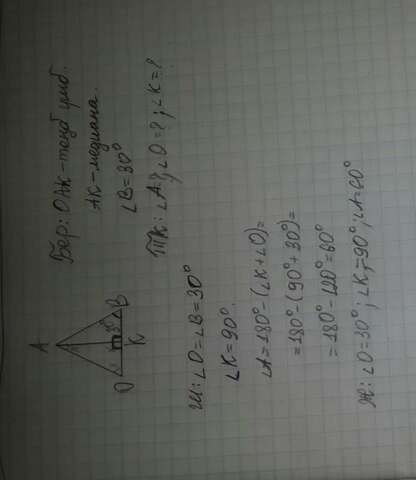 Бер: ОАК-тең үшб.
АК-медиана.
∠B=30°
Т/К: ∠A?, ∠O=?; ∠K=?
A
O
K
B
30°
Ш: ∠O=∠B=30°
∠K=90°.
∠A=180°-(∠K+∠O)=
=180°-(90°+30°)=
=180°-120°=60°
Ж: ∠O=30°; ∠K=90°; ∠A=60°